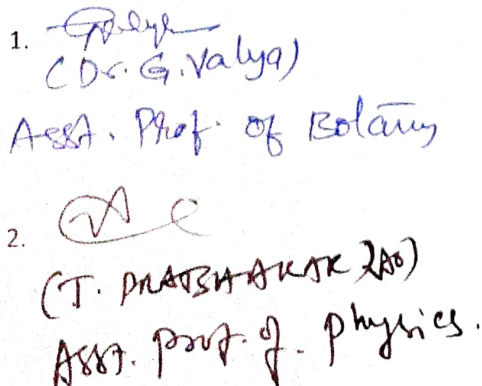 1.
(Dr. G. Valya)
Asst. Prof. of Botany
2.
(T. PRABHAKAR RAO)
Asst. prof. of. physics.